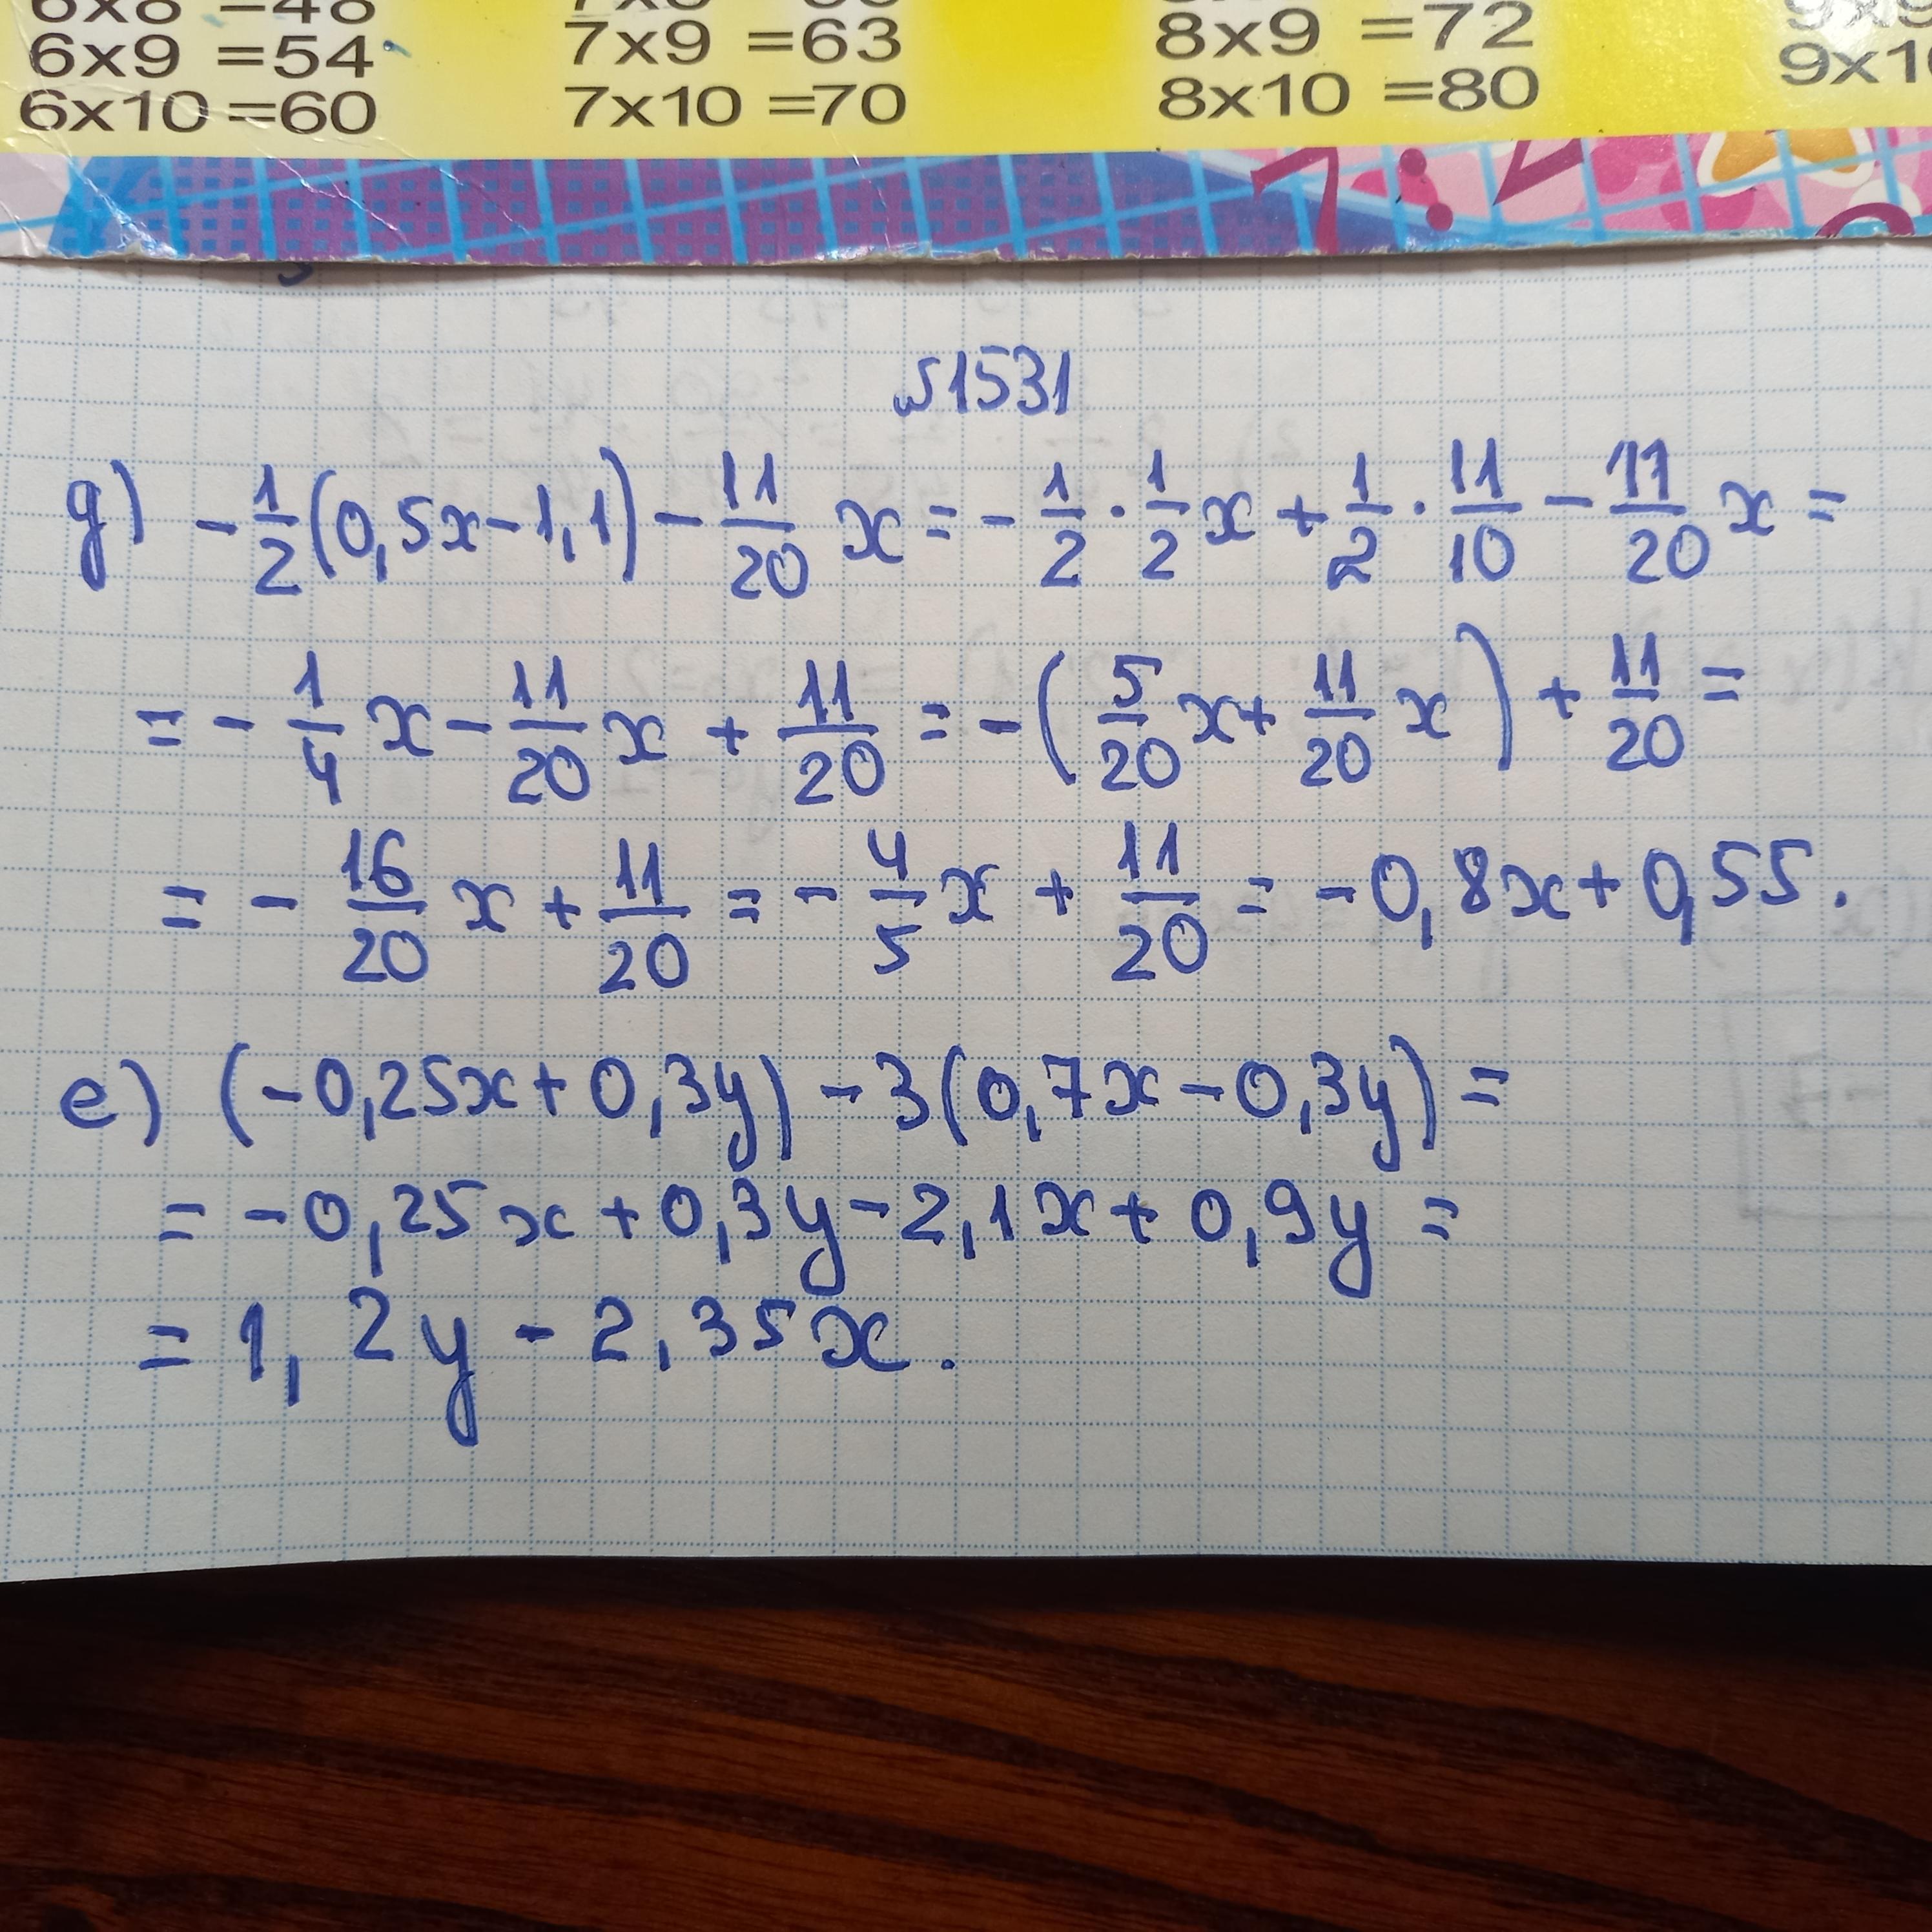 6x8 =48
6x9 =54 7x9 =63 8x9 =72
6x10 =60 7x10 =70 8x10 =80
№1531
д) -1/2(0,5x-1,1)-11/20 x=-1/2·1/2x+1/2·11/10-11/20x=
=-1/4x-11/20x+11/20=-(5/20x+11/20x)+11/20=
=-16/20x+11/20=-4/5x+11/20=-0,8x+0,55.
е) (-0,25x+0,3y)-3(0,7x-0,3y)=
=-0,25x+0,3y-2,1x+0,9y=
=1,2y-2,35x.